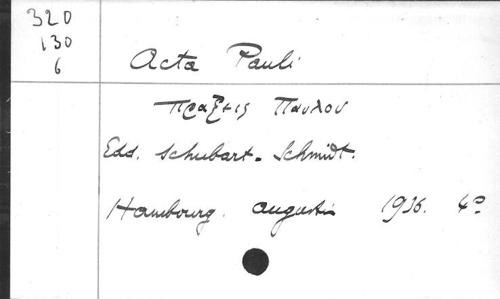 320
130
6
Acta Pauli
Πραξεις Παυλου
Edd. Schubart - Schmidt.
Hambourg. Augustin 1936. 4°